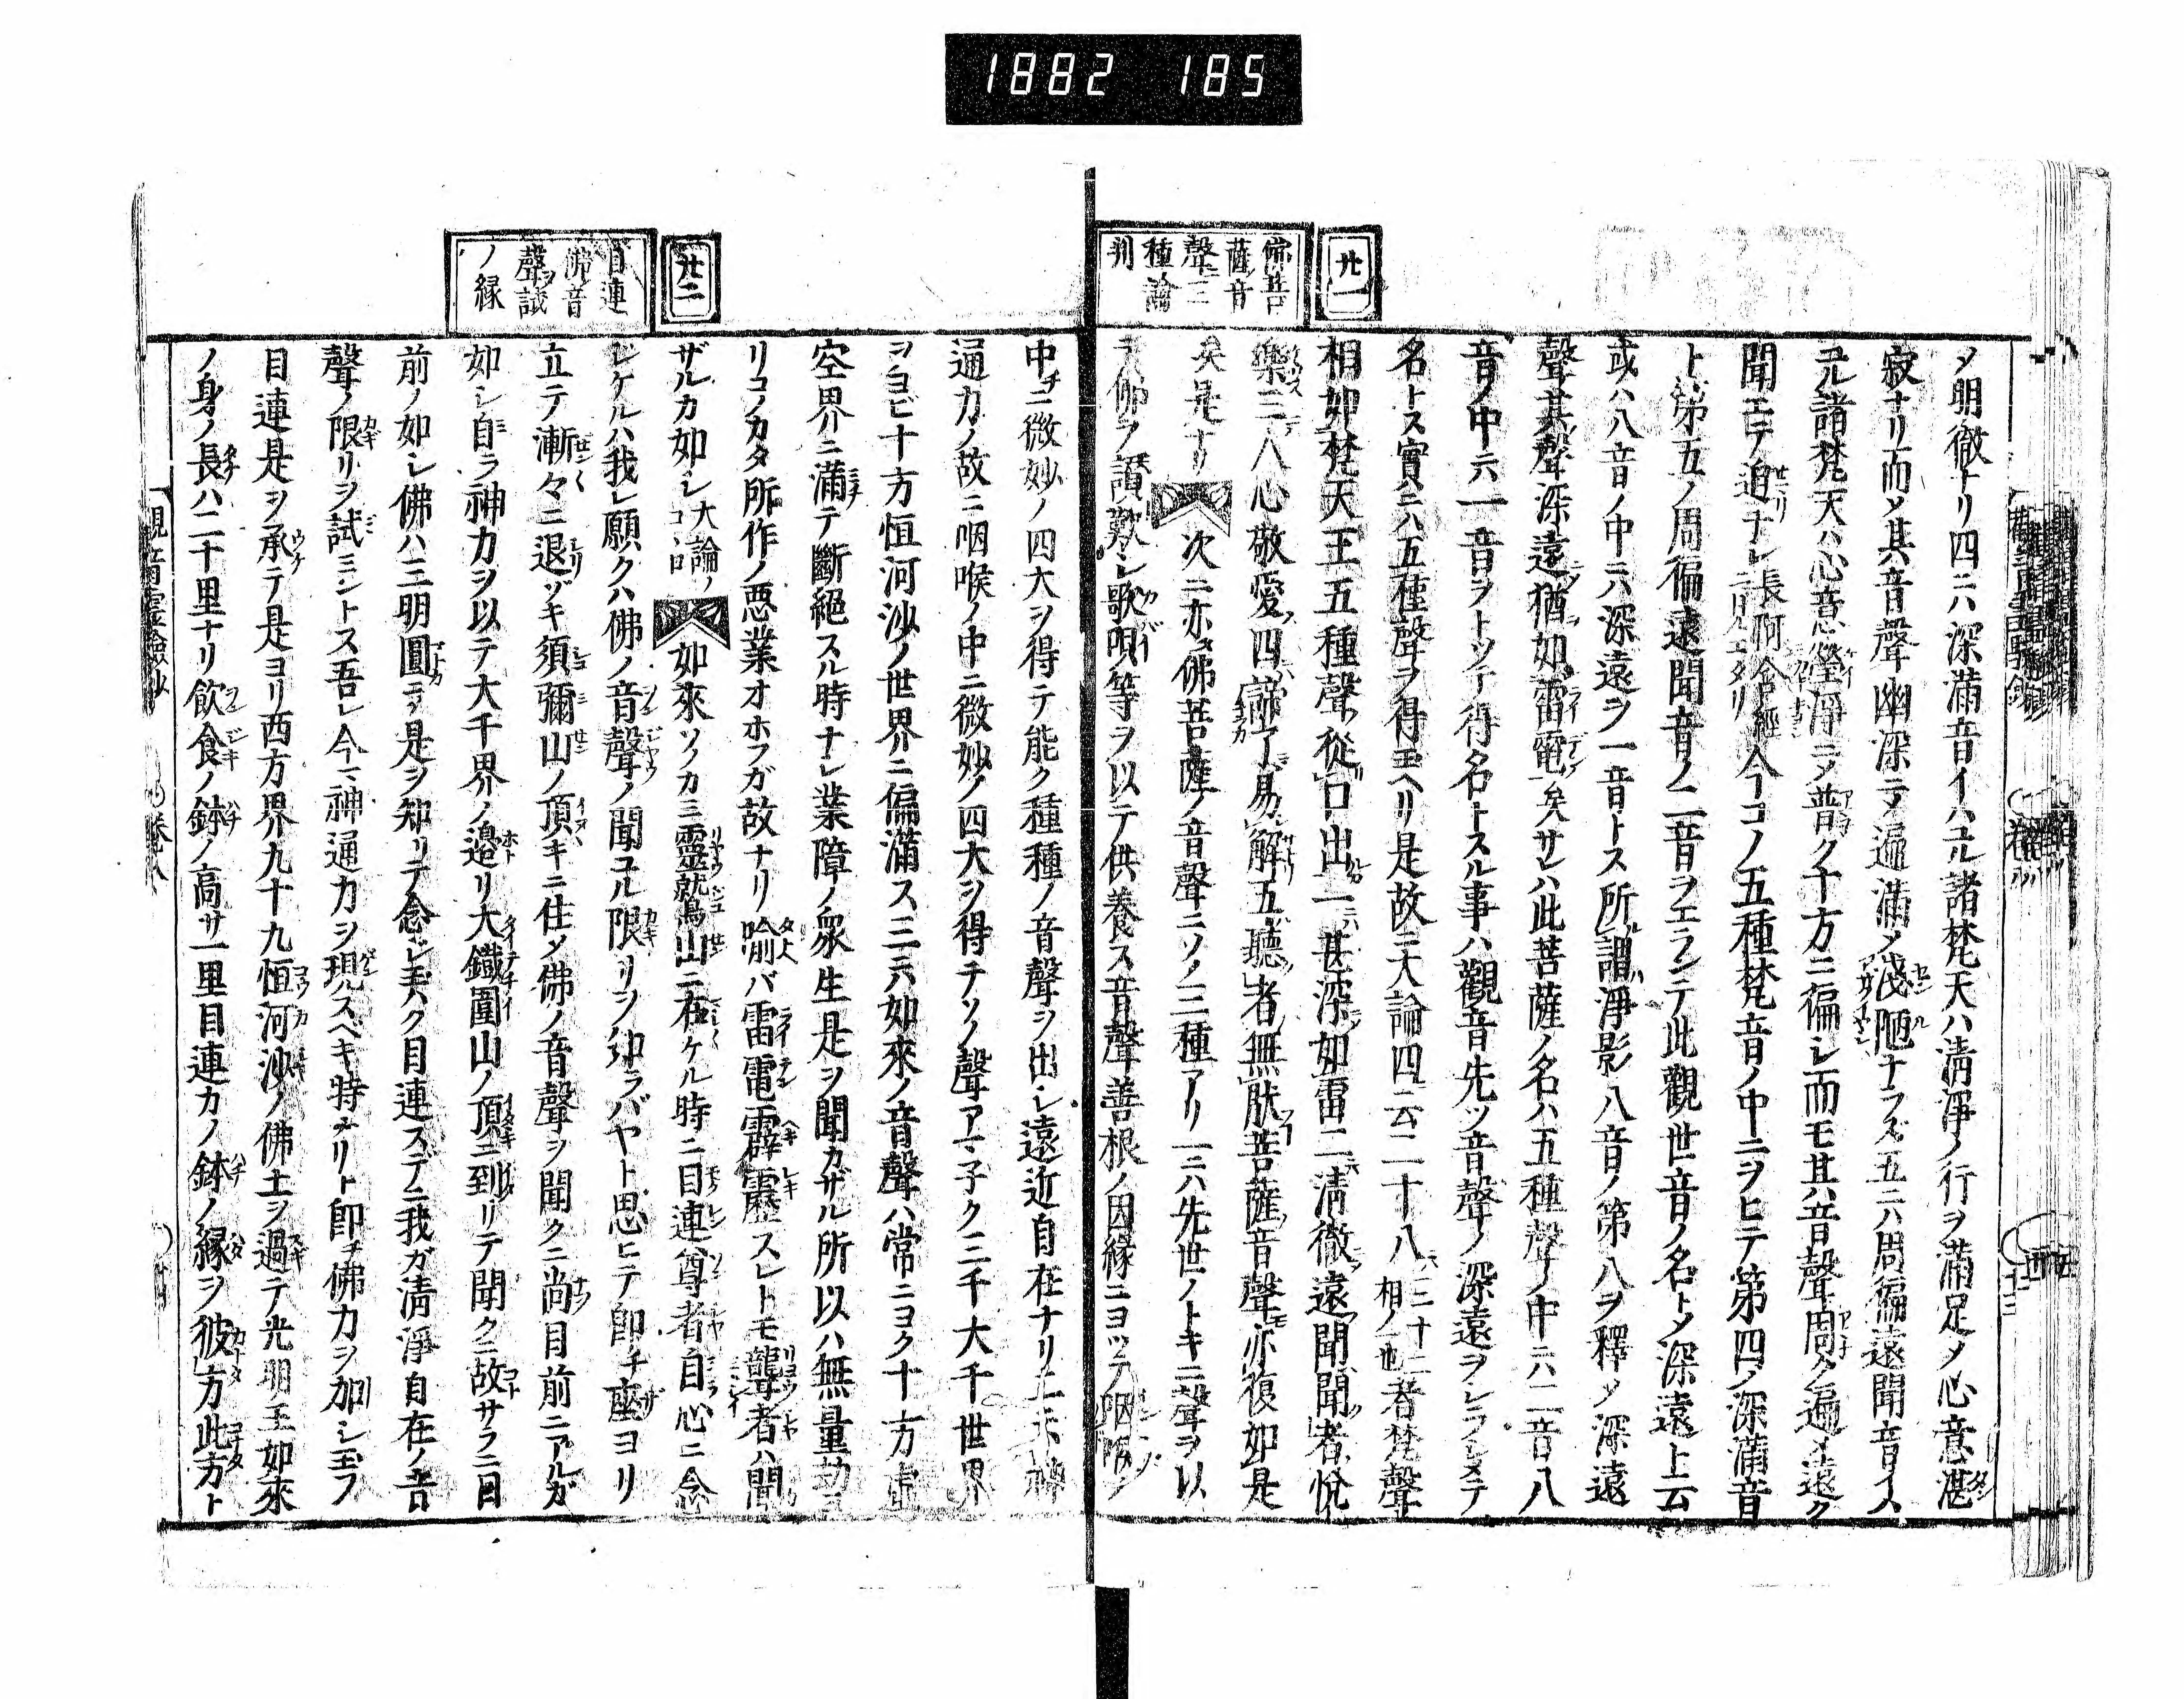 1882 185
廿一
佛菩
薩ノ音
聲ニ三
種論
判
メ明徹ナリ四ニハ深滿音イハユル諸梵天ハ淸淨ノ行ヲ滿足メ心意湛
寂ナリ而メ其音聲幽深ニメ遍滿メ淺陋ナラズ五ニハ周徧遠聞音イハ
ユル諸梵天ハ心意瑩淨ニメ普ク十方ニ徧シ而モ其ノ音聲周ク遍メ遠ク
聞エテ迫ナシ長阿含經ニ見エタリ今コノ五種梵音ノ中ニヲヒテ第四ノ深滿音
ト第五ノ周徧遠聞音ノ二音ヲエランテ此觀世音ノ名トメ深遠上云
或ハ八音ノ中ニハ深遠ヲ一音トス所謂淨影八音ノ第八ヲ釋メ深遠
聲其聲深遠猶如雷電矣サレハ此菩薩ノ名ハ五種聲ノ中ニハ二音八
音ノ中ニハ一音ヲトツテ得名トスル事ハ觀音先ツ音聲ノ深遠ヲシラシメテ
名トス實ニハ五種聲ヲ得玉ヘリ是故ニ大論四云二十八三十二相ノ一也者梵聲
相如梵天王五種聲從口出一甚深如雷二淸徹遠聞聞者悅
樂三入心敬愛四諦了易解五聽者無厭菩薩音聲亦復如是
矣是ナリ次ニ亦タ佛菩薩ノ音聲ニソノ三種アリ一ニハ先世ノトキニ聲ヲ以
テ佛ヲ讃歎シ歌唄等ヲ以テ供養ス音聲善根ノ因緣ニヨツテ咽喉ノ
中チニ微妙ノ四大ヲ得テ能ク種種ノ音聲ヲ出シ遠近自在ナリ二ニハ神
通力ノ故ニ咽喉ノ中ニ微妙ノ四大ヲ得チソノ聲アマ子ク三千大千世界
ヲヨヒ十方恒河沙ノ世界ニ徧滿ス三ニハ如來ノ音聲ハ常ニヨク十方虛
空界ニ滿テ斷絕スル時ナシ業障ノ衆生是ヲ聞カザル所以ハ無量劫ヨ
リコノカタ所作ノ惡業オホフガ故ナリ喩バ雷電霹靂スレトモ聾者ハ聞
ザルカ如シ大論ノココロ如來ソノカミ靈就鳥山ニ在ケル時ニ目連尊者自心ニ念
シケルハ我レ願クハ佛ノ音聲ノ聞ユル限リヲ知ラバヤト思ヒテ卽チ座ヨリ
立テ漸々ニ退ゾキ須彌山ノ頂キニ住メ佛ノ音聲ヲ聞クニ尚目前ニアルガ
如シ自ラ神力ヲ以テ大千界ノ邊リ大鐵圍山ノ頂ニ到リテ聞クニ故サラニ目
前ノ如シ佛ハ三明圓ニメ是ヲ知リテ念シ玉ハク目連スデニ我ガ淸淨自在ノ音
聲ノ限リヲ試ミントス吾レ今マ神通力ヲ現スベキ特ナリト卽チ佛力ヲ加シ玉フ
目連是ヲ承テ是ヨリ西方界九十九恒河沙ノ佛土ヲ過テ光明王如來
ノ身ノ長ハ二十里ナリ飮食ノ鉢ノ高サ一里目連カノ鉢ノ緣ヲ彼方此方ト
廿二
目連
佛音
聲ヲ試
ノ緣
觀音靈驗鈔
卷八